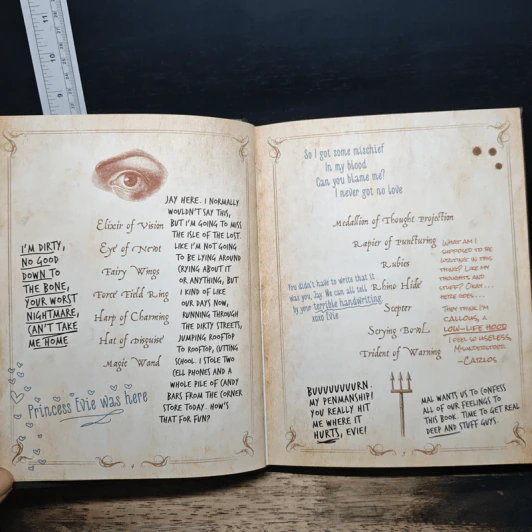 I'M DIRTY,
NO GOOD
DOWN TO
THE BONE,
YOUR WORST
NIGHTMARE,
CAN'T TAKE
ME HOME
Elixir of Vision
Eye of Newt
Fairy Wings
Force Field Ring
Harp of Charming
Hat of Disguise
Magic Wand
JAY HERE. I NORMALLY
WOULDN'T SAY THIS,
BUT I'M GOING TO MISS
THE ISLE OF THE LOST.
LIKE I'M NOT GOING
TO BE LYING AROUND
CRYING ABOUT IT
OR ANYTHING, BUT
I KIND OF LIKE
OUR DAYS NOW,
RUNNING THROUGH
THE DIRTY STREETS,
JUMPING ROOFTOP
TO ROOFTOP, CUTTING
SCHOOL. I STOLE TWO
CELL PHONES AND A
WHOLE PILE OF CANDY
BARS FROM THE CORNER
STORE TODAY. HOW'S
THAT FOR FUN?
Princess Evie was here
So I got some mischief
In my blood
Can you blame me?
I never got no love
Medallion of Thought Projection
Rapier of Puncturing
Rubies
Rhino Hide
Scepter
Scrying Bowl
Trident of Warning
You didn't have to write that it
was you, Jay. We can all tell
by your terrible handwriting.
xoxo Evie
WHAT AM I
SUPPOSED TO BE
WRITING IN THIS
THING? LIKE MY
THOUGHTS AND
STUFF? OKAY...
HERE GOES...
THEY THINK I'M
CALLOUS, A
LOW-LIFE HOOD
I FEEL SO USELESS,
MISUNDERSTOOD.
-CARLOS
BUUUUUUURN.
MY PENMANSHIP!
YOU REALLY HIT
ME WHERE IT
HURTS, EVIE!
MAL WANTS US TO CONFESS
ALL OF OUR FEELINGS TO
THIS BOOK. TIME TO GET REAL
DEEP AND STUFF GUYS.
11
10
9